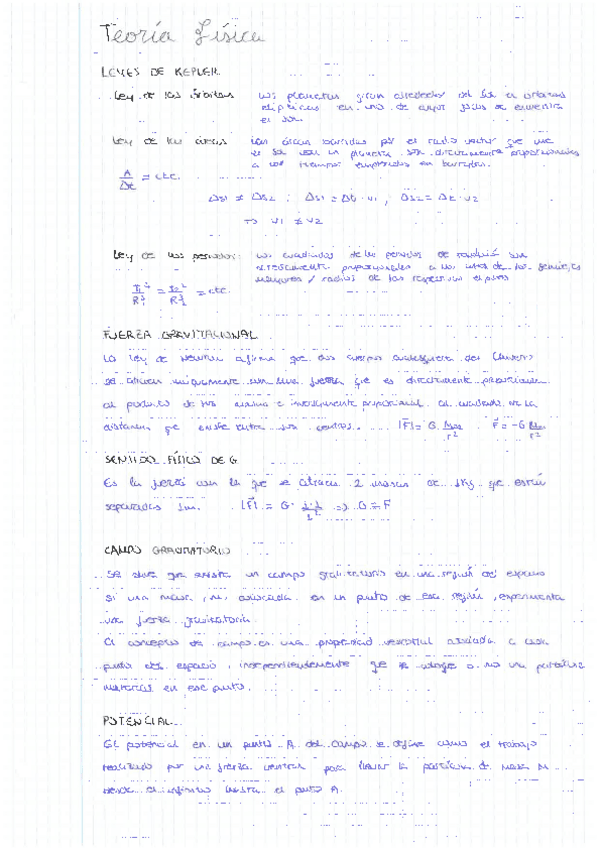 Teoría Física
LEYES DE KEPLER
Ley de las órbitas los planetas giran alrededor del Sol en órbitas
elípticas en uno de cuyos focos se encuentra
el sol.
Ley de las áreas las áreas barridas por el radio vector que une
el sol con un planeta son directamente proporcionales
a los tiempos empleados en barrerlas.
A/Δt = cte.
ΔS1 ≠ ΔS2 : ΔS1 = Δt · v1 , ΔS2 = Δt · v2
→ v1 ≠ v2
Ley de los periodos: los cuadrados de los periodos de son
directamente proporcionales a los de los semiejes
/ radios de las respectivas
= cte.
FUERZA GRAVITACIONAL
La ley de Newton afirma que dos cuerpos cualesquiera del Universo
se atraen con una fuerza que es directamente proporcional
al producto de sus masas e inversamente proporcional al cuadrado de la
distancia que existe entre sus centros. |F| = G F = -G
SENTIDO FÍSICO DE G
Es la fuerza con la que se atraen 2 masas de 1Kg que están
separadas 1m. |F| = G · 1·1/1² => G = F
CAMPO GRAVITATORIO
Se dice que existe un campo gravitatorio en una región del espacio
si una masa, m, colocada en un punto de esa región, experimenta
una fuerza gravitatoria.
El concepto de campo es una propiedad asociada a cada
punto del espacio, independientemente que se coloque o no una partícula
material en ese punto.
POTENCIAL
El potencial en un punto A del campo se define como el trabajo
realizado por una fuerza para llevar la partícula de masa m
desde el infinito hasta el punto A.